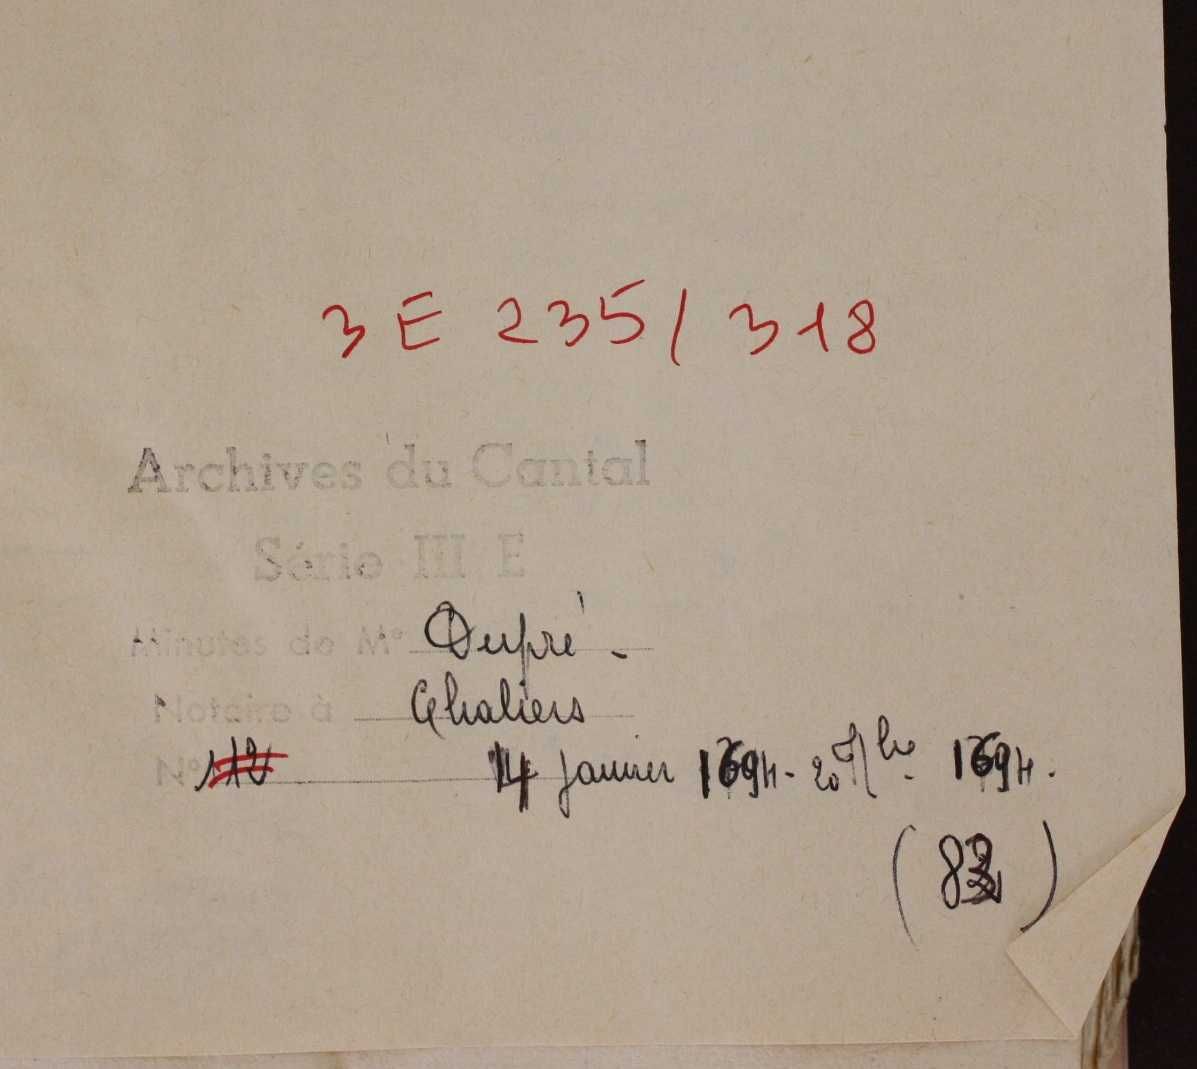 3 E 235 / 318
Archives du Cantal
Série III E
Minutes de Me Dupré -
Notaire à Chaliers
N° 112 14 janvier 1694 - 20 1694.
(82)